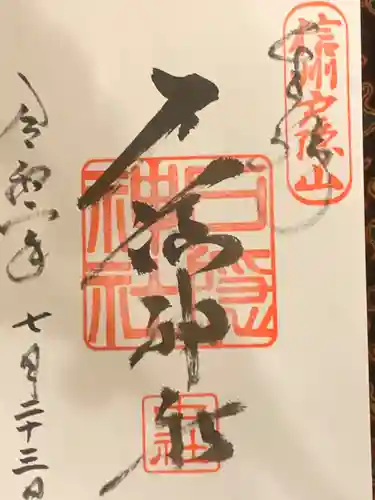 信州戸隠山
戸隠神社
戸隠
神社
中社
令和二年七月二十三日